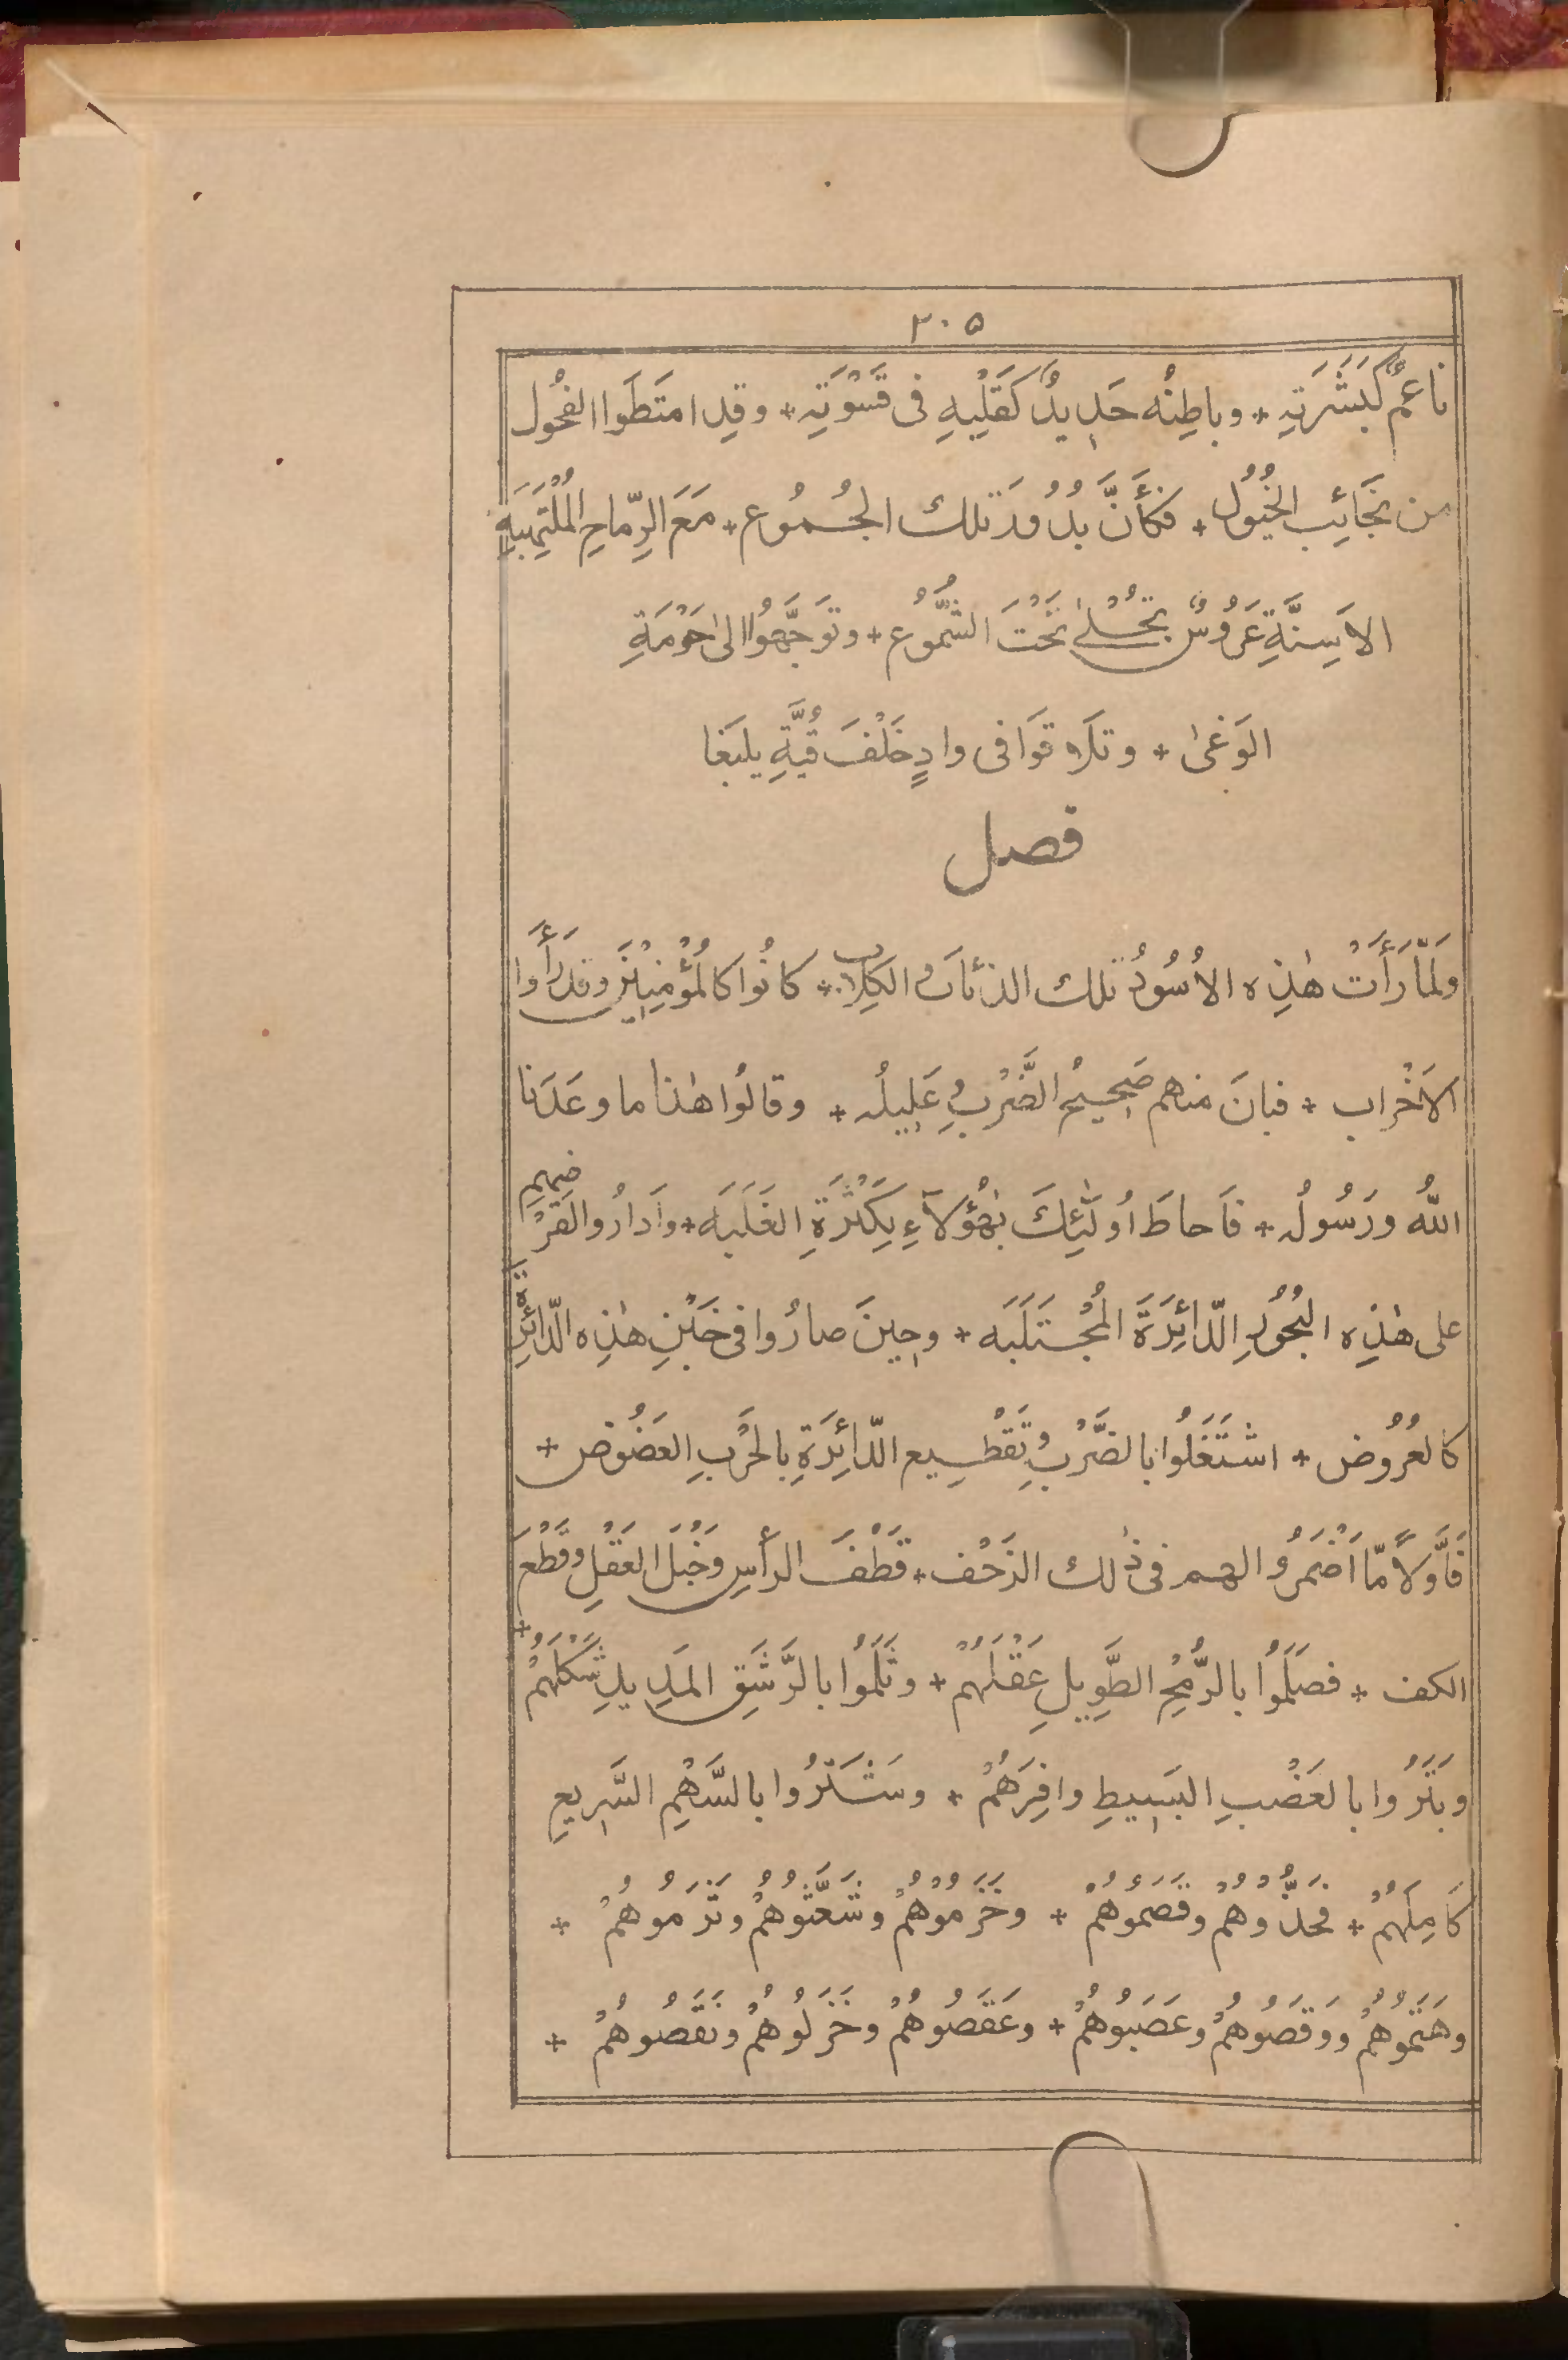 ٢٠٥
ناعِمٌ كَبَشَرَتِهِ * وباطِنُه حَدِيدٌ كَقَلْبِهِ فى قَسْوَتِهِ * وقدِ امتَطَوا الفُحُول
من نَجَائِب الخُيُول * فكأَنَّ بُدُورَ تلك الجُمُوع * مَعَ الرِّماحِ المُلْتَهِبَةِ
الاَسِنَّةِ عَرُوسٌ تُجْلىٰ تَحْتَ الشُّمُوع * وتَوَجَّهُوا الىٰ حَوْمَةِ
الوَغىٰ * وتلاقَوا فى وادٍ خَلْفَ قُبَّةِ يلبَغا
فصل
ولَمّا رَأَتْ هٰذِه الاُسُودُ تلك الذئابَ والكِلاب * كانُوا كالمُؤْمِنِيْنَ وقد رَأَوا
الاَحْزاب * فبانَ منهم صَحِيحُ الضَّرْبِ وعَلِيلُه * وقالُوا هٰذا ما وعَدَنا
اللّٰه ورَسُولُه * فاَحاطَ اُولٰئِكَ بِهٰؤُلآءِ بِكَثْرَةِ الغَلَبَه * واَدارُوا لقَرْضِهِمِ
على هٰذِه البُحُورِ الدّائِرَةَ المُجْتَلَبَه * وحِينَ صارُوا فى خَبْنِ هٰذِه الدّائِرَةِ
كالعُرُوض * اشتَغَلُوا بالضَّرْبِ وتَقْطِيع الدّائِرَةِ بالحَرْبِ العَضُوض *
فاَوَّلاً مّا اَضْمَرُوا لهم فى ذٰلك الزَحْف * قَطْفَ الرأسِ وخَبْلَ العَقْلِ وقَطْعَ
الكف * فصَلَمُوا بالرُّمْحِ الطَّوِيلِ عَقْلَهُمْ * وثَلَمُوا بالرَّشَقِ المَدِيدِ شَكْلَهُمْ *
وبَتَرُوا بالعَضْبِ البَسِيطِ وافِرَهُمْ * وشَتَرُوا بالسَّهْمِ السَّرِيعِ
كامِلَهُمْ * فحَذُّوهُمْ وقَصَمُوهُمْ * وخَرَمُوهُمْ وشَعَّثُوهُمْ وثَرَمُوهُمْ *
وهَتَمُوهُمْ ووقَصُوهُمْ وعَصَبُوهُمْ * وعَقَصُوهُمْ وخَزَلُوهُمْ ونَقَصُوهُمْ *